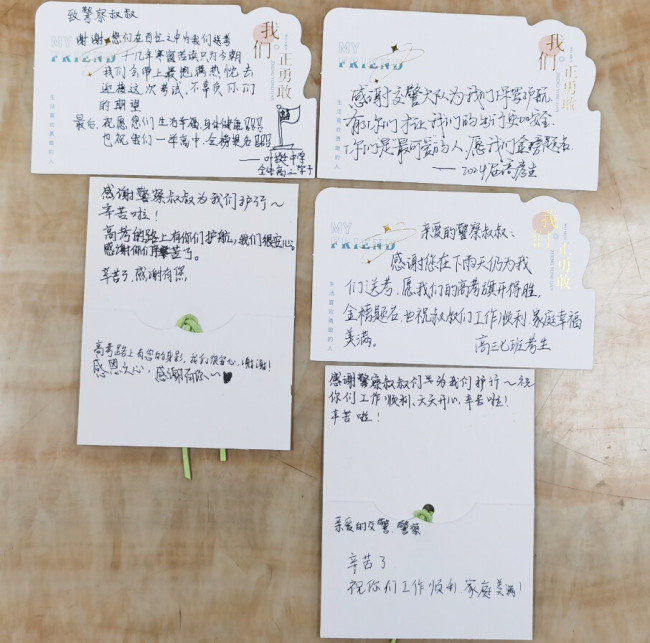 致警察叔叔
谢谢您们在百忙之中为我们送考
十几年寒窗苦读只为今朝
我们会带上最饱满热忱去
迎接这次考试,不辜负你们
的期望
最后,祝愿您们生活幸福,身体健康
也祝我们一举高中,金榜题名
——叶集中学
全体高三学子
MY
FRIEND
我们
正勇敢
生活喜欢勇敢的人
感谢交警大队为我们保驾护航
有你们才让我们的出行更加安全
你们是最可爱的人,愿我们金榜题名
——2024届高考生
MY
FRIEND
我们
正勇敢
生活喜欢勇敢的人
感谢警察叔叔为我们护行~
辛苦啦!
高考的路上有你们护航,我们很安心。
感谢你们,辛苦了。
辛苦了,感谢有您
高考路上有您的身影,我们很安心,谢谢!
感恩之心,感谢有你~
亲爱的警察叔叔:
感谢您在下雨天仍为我
们送考,愿我们的高考旗开得胜,
金榜题名,也祝叔叔们工作顺利,家庭幸福
美满。
高三七班考生
MY
FRIEND
我们
正勇敢
生活喜欢勇敢的人
感谢警察叔叔们为我们护行~祝
你们工作顺利、天天开心,辛苦啦!
辛苦啦!
亲爱的交警、警察
辛苦了
祝你们工作顺利,家庭美满!